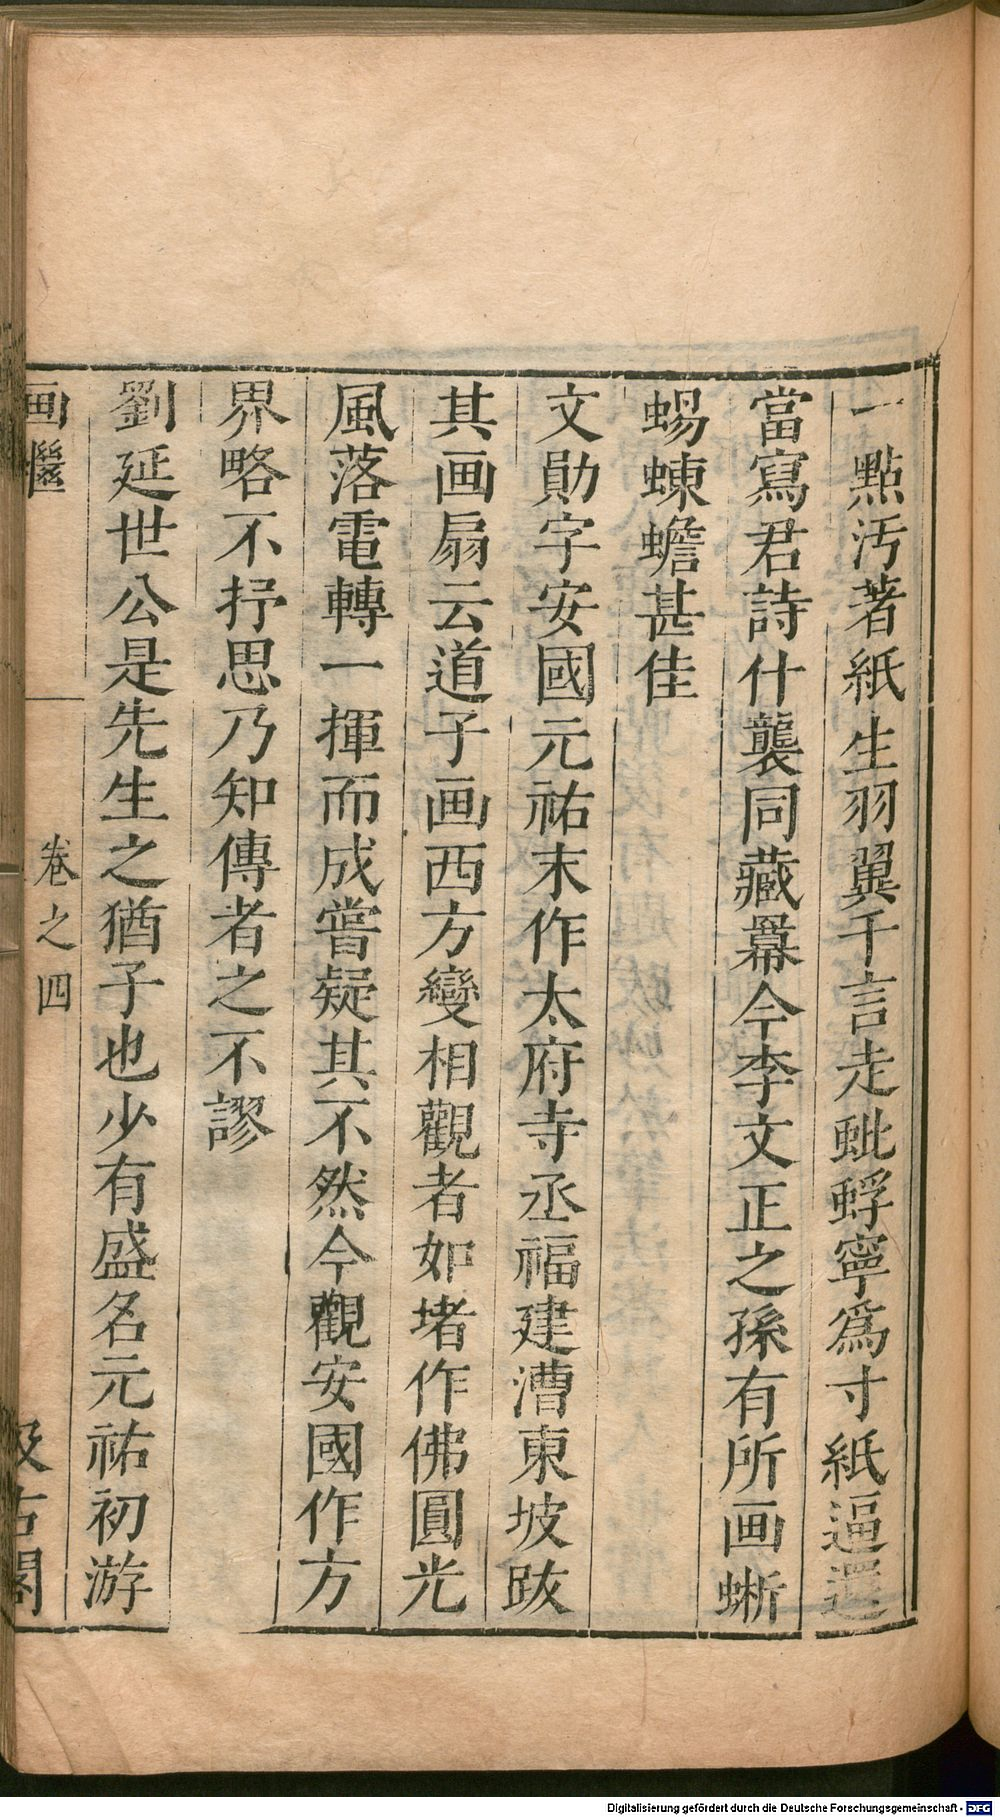 一點汚著紙生羽翼千言走蚍蜉寧爲寸紙逼還
當寫君詩什襲同藏羃今李文正之孫有所画蜥
蜴蝀蟾甚佳
文勛字安國元祐末作太府寺丞福建漕東坡跋
其画扇云道子画西方變相觀者如堵作佛圓光
風落電轉一揮而成嘗疑其不然今觀安國作方
界略不抒思乃知傳者之不謬
劉延世公是先生之猶子也少有盛名元祐初游
画繼 卷之四 汲古閣
Digitalisierung gefördert durch die Deutsche Forschungsgemeinschaft - DFG